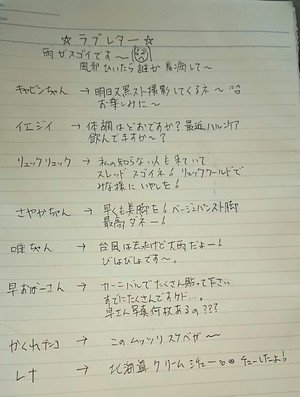 ☆ラブレター☆
雨がスゴイです〜
風邪ひいたら誰か看病して〜
キャビンちゃん → 明日黒スト撮影してくるネ〜
お楽しみに〜
イエジイ → 体調はどおですか?最近ハルシオ
飲んでますか〜?
リュックリュック → 私の知らない人も来ていて
スレッド スゴイネ!リュックワールドで
みな様にいやしを!
さやかちゃん → 早くも美脚を!ベージュパンスト脚
最高ダネー!
唯ちゃん → 台風は去ったけど大雨だよー!
びしょびしょです〜。
早おばーさん → カーニバルでたくさん貼って下さい
すでにたくさんですケド…。
早さん写真何枚あるの???
かくれチコ → このムッツリスケベが〜
レナ → 北海道クリームシチュー チューしたよ!